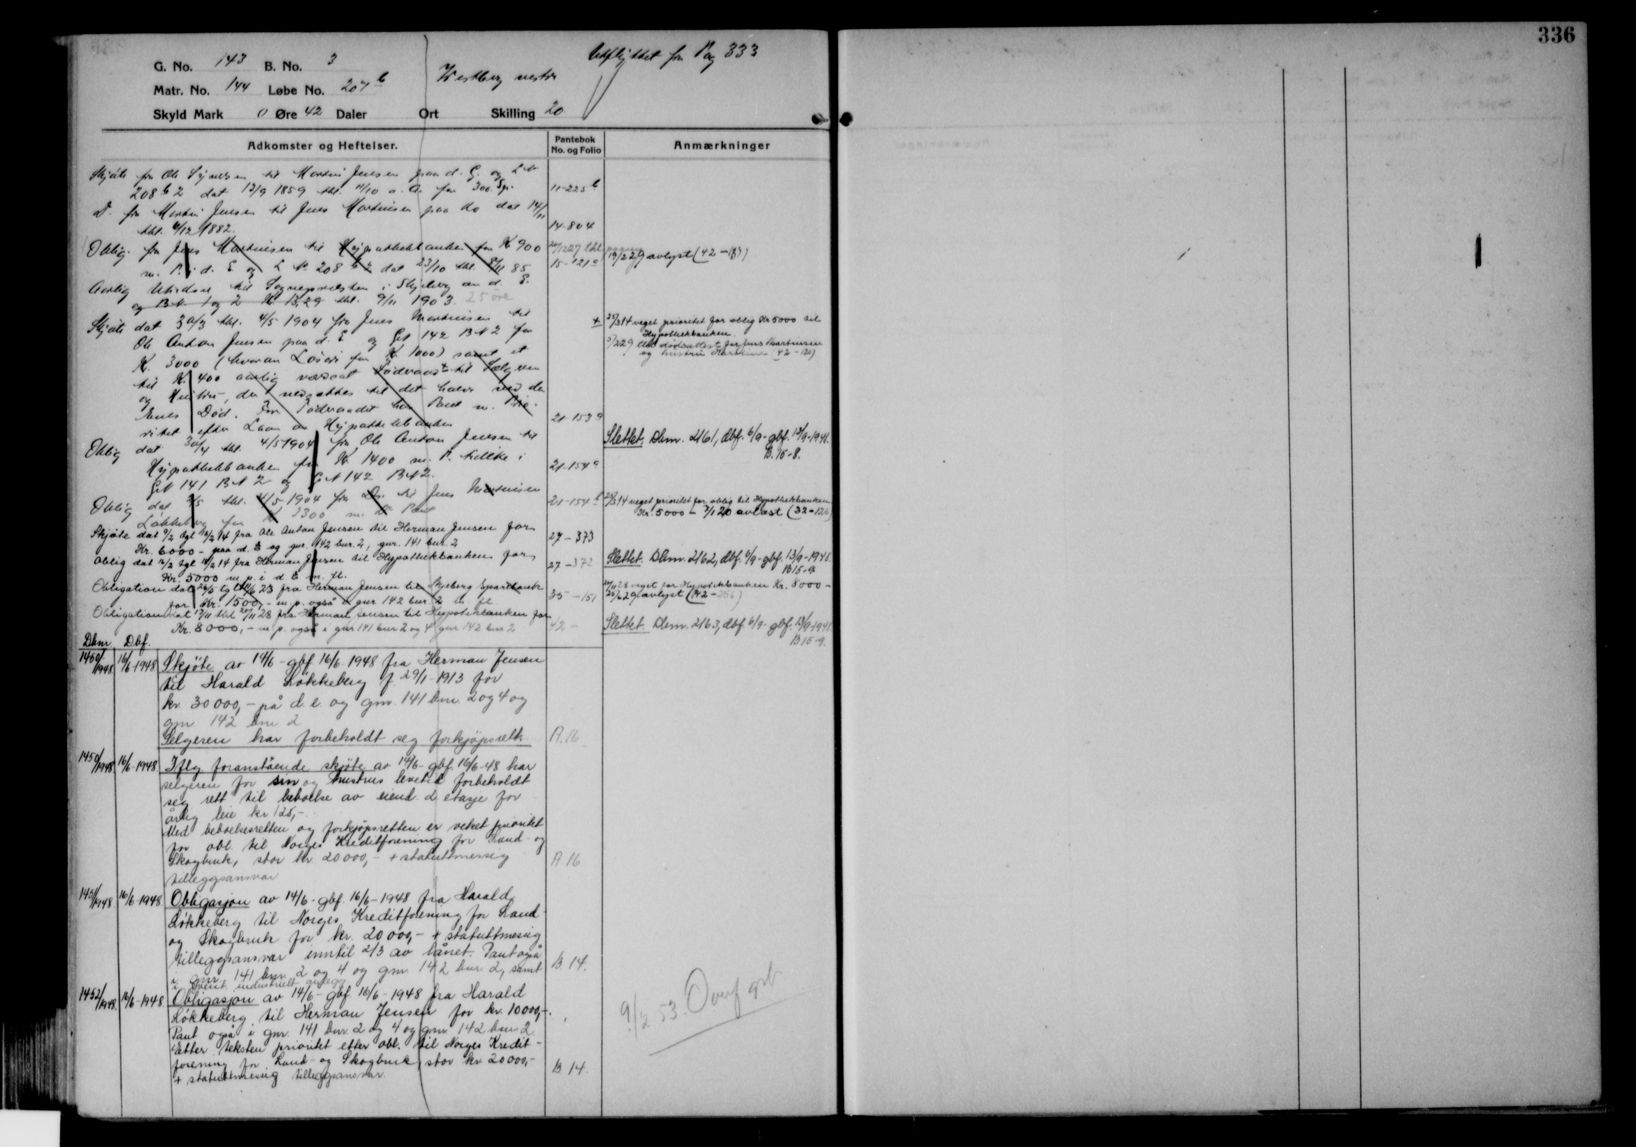 336
G. No. 143 B. No. 3
Matr. No. 144 Løbe No. 207 b
Skyld Mark 0 Øre 42 Daler Ort Skilling 20
vestre
Udflyttet fra Pag 333
Adkomster og Heftelser.
Pantebok
No. og Folio
Anmærkninger
Skjøte fra Ole Syversen til Martin Jensen paa d. E. og L No
208 b 2 dat 13/9 1859 thl. 11/10 s. A. for 300 Sp. 11-225 b
D. fra Martin Jensen til Jens Martinsen paa do dat 14/11
thl. 4/12 1882. 14-804
Oblig. fra Jens Martinsen til Hypothekbanken for K 900
m. P. i d. E og L No 208 b 2 dat 23/10 thl. 85 15-121 a
avlyst (42-
Aarlig til Sognepresten i Skjeberg av d. E.
og B No 1 og 2 K 13,29 thl. 9/11 1903. 25 øre
Skjøte dat 30/3 thl. 4/5 1904 fra Jens Martinsen til
Ole Anton Jensen paa d. E og GN 142 BN 2 for
K. 3000 (hvoraf Løsøre for K 1000) samt et
til K. 400 aarlig værdsat Fødraad til Sælgeren
og Hustru, der nedsættes til det halve ved den
Enes Død. For Fødraadet har Pant m. Prio-
ritet efter Laan av Hypothekbanken 21-153 a
20/3 14 veget prioritet for oblig Kr 5000 til
Hypothekbanken.
og hustru (42-120)
Oblig dat 30/4 thl. 4/5 1904 fra Ole Anton Jensen til
Hypothekbanken for K. 1400 m. P. tillike i
GN 141 BN 2 og GN 142 BN 2. 21-154 a
Slettet. Dbnr. 2161, dbf. 6/9 - gbf. 13/9-1948.
B. 15-8.
Oblig dat 2/5 thl. 4/5-1904 fra Ds. til Jens Martinsen
Løkkeberg for K 3300 m. Pant 21-154 b
20/3 14 veget prioritet for oblig til Hypothekbanken
Kr. 5000 - 7/1 20 avlæst (32-
Skjøte dat 9/2 tgl 14 fra Ole Anton Jensen til Herman Jensen for
Kr. 6000 - paa d. E og gnr. 142 bnr. 2, gnr. 141 bnr. 2 27-373
Oblig dat 14/2 tgl 14 fra Herman Jensen til Hypothekbanken for
Kr. 5000 m. p. i d. E m. fl. 27-372
Slettet. Dbnr. 2162, dbf. 6/9-gbf. 13/9-1948.
B15-9.
Obligation dat tgl 23 fra Herman Jensen til Skjeberg Sparebank
for Kr. 1500,- m p. også i gnr 142 bnr 2 m. fl. 35-151
28 veget for Hypothekbanken Kr. 8000-
avlyst (42-
Obligation dat 9/11 thl 20/11 28 fra Herman Jensen til Hypothekbanken for
Kr. 8000,- m p. også i gnr 141 bnr 2 og 4 gnr 142 bnr 2 42-
Slettet. Dbnr. 2163, dbf. 6/9- gbf. 13/9-1948.
B 15-9.
Dbnr Dbf.
1450/1948 16/6-1948 Skjøte av 14/6-gbf 16/6-1948 fra Herman Jensen
til Harald Løkkeberg f 29/1-1913 for
kr. 30000,- på d. e. og gnr. 141 bnr. 2 og 4 og
gnr 142 bnr 2
Selgeren har forbeholdt seg forkjøpsrett. A. 16
1450/1948 16/6-1948 Iflg foranstående skjøte av 14/6-gbf 16/6-48 har
selgeren for sin og hustrus levetid forbeholdt
seg rett til beboelse av eiend. 2. etasje for
årlig leie kr. 125,-.
Med beboelsesretten og forkjøpsretten er veket prioritet
for obl. til Norges Kreditforening for Land- og
Skogbruk, stor kr. 20000,- + statuttmessig
tilleggsansvar A. 16
1451/1948 16/6-1948 Obligasjon av 14/6-gbf 16/6-1948 fra Harald
Løkkeberg til Norges Kreditforening for Land-
og Skogbruk for kr. 20000,- + statuttmessig
tilleggsansvar inntil 2/3 av lånet. Pant også
i gnr. 141 bnr. 2 og 4 og gnr. 142 bnr. 2, samt B 14.
1452/1948 16/6-1948 Obligasjon av 14/6-gbf 16/6-1948 fra Harald
Løkkeberg til Herman Jensen for kr. 10000,-.
Pant også i gnr. 141 bnr. 2 og 4 og gnr. 142 bnr 2
Etter teksten prioritet etter obl. til Norges Kredit-
forening for Land- og Skogbruk, stor kr 20000,-
+ statuttmessig tilleggsansvar. B 14.
9/2 53. Overf grb